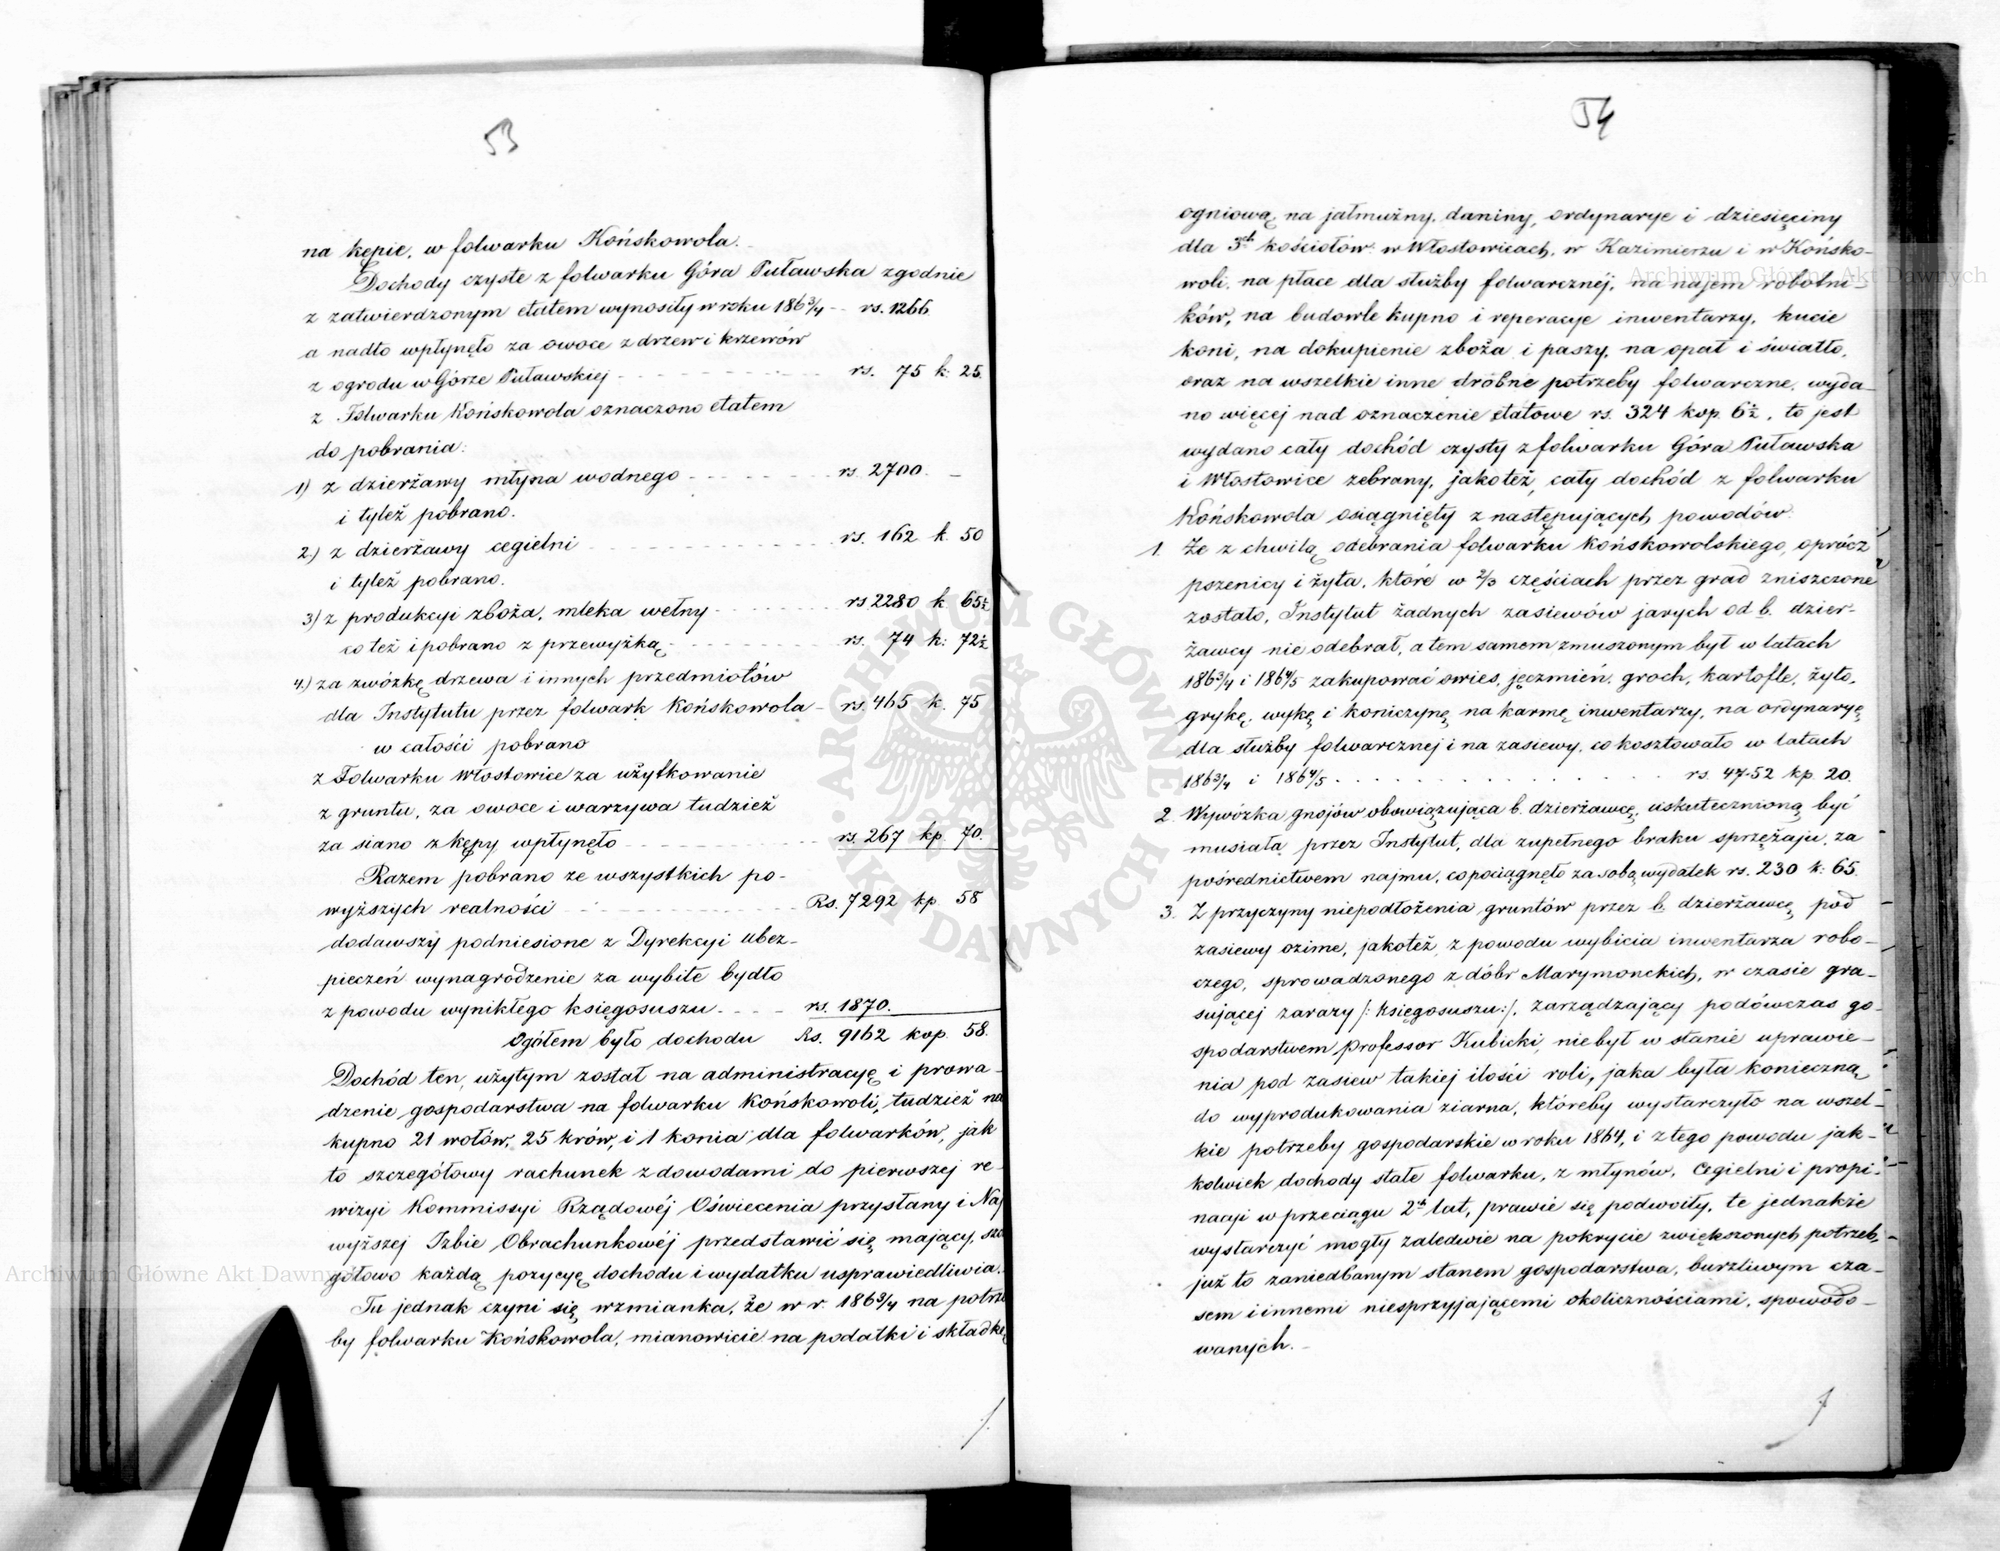 53
na kępie, w folwarku Końskowola.
Dochody czyste z folwarku Góra Puławska zgodnie
z zatwierdzonym etatem wynosiły w roku 186 3/4 -- rs. 1266.
a nadto wpłynęło za owoce z drzew i krzewów
z ogrodu w Górze Puławskiej - - - - - - - rs. 75 k. 25.
z Folwarku Końskowola oznaczono etatem
do pobrania:
1) z dzierżawy młyna wodnego - - - - - - rs. 2700. —
i tyleż pobrano.
2.) z dzierżawy cegielni - - - - - - - - - rs. 162 k. 50
i tyleż pobrano.
3) z produkcyi zboża, mleka wełny - - - - - - rs 2280 k. 65½
co też i pobrano z przewyżką - - - - - - - rs. 74 k: 72½
4.) za zwózkę drzewa i innych przedmiotów
dla Instytutu przez folwark Końskowola - rs. 465 k. 75
w całości pobrano
z Folwarku Włostowice za użytkowanie
z gruntu, za owoce i warzywa tudzież
za siano z kępy wpłynęło - - - - - - - - rs. 267 kp. 70.
Razem pobrano ze wszystkich po-
wyższych realności - - - - - - - - - Rs. 7292 kp. 58
dodawszy podniesione z Dyrekcyi ubez-
pieczeń wynagrodzenie za wybite bydło
z powodu wynikłego księgosuszu - - - - rs. 1870.
Ogółem było dochodu Rs. 9162 kop. 58.
Dochód ten, użytym został na administracyę i prowa-
dzenie gospodarstwa na folwarku Końskowoli, tudzież na
kupno 21 wołów, 25 krów, i 1 konia dla folwarków, jak
to szczegółowy rachunek z dowodami do pierwszej re-
wizyi Kommissyi Rządowéj Oświecenia przysłany i Naj
wyższej Izbie Obrachunkowéj przedstawić się mający, szcz
gółowo każdą pozycyę dochodu i wydatku usprawiedliwia.
Tu jednak czyni się wzmianka, że w r. 186 3/4 na potrze
by folwarku Końskowola, mianowicie na podatki i składkę
54
ogniową, na jałmużny, daniny, ordynarye i dziesięciny
dla 3ch kościołów: w Włostowicach, w Kazimierzu i w Końsko-
woli, na płace dla służby folwarcznéj, na najem robotni-
ków, na budowle kupno i reperacye inwentarzy, kucie
koni, na dokupienie zboża i paszy, na opał i światło,
oraz na wszelkie inne drobne potrzeby folwarczne, wyda-
no więcej nad oznaczenie etatowe rs. 324 kop. 6½, to jest
wydano cały dochód czysty z folwarku Góra Puławska
i Włostowice zebrany, jakoteż, cały dochód z folwarku
Końskowola osiągnięty z następujących powodów:
1. Że z chwilą odebrania folwarku Końskowolskiego, oprócz
pszenicy i żyta, które w 2/3 częściach przez grad zniszczone
zostało, Instytut żadnych zasiewów jarych od b. dzier-
żawcy nie odebrał, a tem samem zmuszonym był w latach
186 3/4 i 186 4/5 zakupować owies, jęczmień, groch, kartofle, żyto,
grykę, wykę i koniczynę na karmę inwentarzy, na ordynaryę
dla służby folwarcznej i na zasiewy, co kosztowało w latach
186 3/4 i 186 4/5 - - - - - - - - - - - - rs. 4752 kp. 20.
2. Wywózka gnojów obowiązująca b. dzierżawcę, uskutecznioną być
musiała przez Instytut, dla zupełnego braku sprzężaju, za
pośrednictwem najmu, co pociągnęło za sobą wydatek rs. 230 k: 65.
3. Z przyczyny niepodłożenia gruntów przez b. dzierżawcę pod
zasiewy ozime, jakoteż z powodu wybicia inwentarza robo-
czego, sprowadzonego z dóbr Marymonckich, w czasie gra-
sującej zarazy /: księgosuszu :/, zarządzający podówczas go-
spodarstwem professor Kubicki, nie był w stanie uprawie-
nia pod zasiew takiej ilości roli, jaka była konieczną,
do wyprodukowania ziarna, któreby wystarczyło na wszel-
kie potrzeby gospodarskie w roku 1864, i z tego powodu jak-
kolwiek dochody stałe folwarku, z młynów, cegielni i propi-
nacyi w przeciągu 2ch lat, prawie się podwoiły, te jednakże
wystarczyć mogły zaledwie na pokrycie zwiększonych potrzeb,
już to zaniedbanym stanem gospodarstwa, burzliwym cza-
sem i innemi niesprzyjającemi okolicznościami, spowodo-
wanych. -
Archiwum Główne Akt Dawnych
Archiwum Główne Akt Dawnych
ARCHIWUM GŁÓWNE AKT DAWNYCH